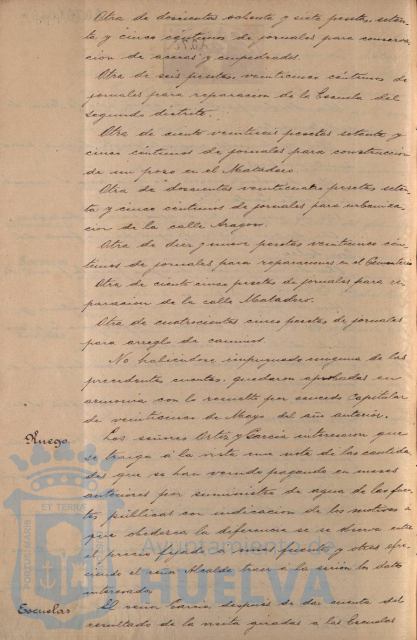 Otra de doscientas ochenta y siete pesetas, seten-
ta y cinco céntimos de jornales para conserva-
cion de aceras y empedrados.
Otra de seis pesetas, veinticinco céntimos de
jornales para reparacion de la Escuela del
segundo distrito.
Otra de ciento veintiseis pesetas setenta y
cinco céntimos de jornales para construccion
de un pozo en el Matadero.
Otra de doscientas veinticuatro pesetas seten-
ta y cinco céntimos de jornales para urbaniza-
cion de la calle Aragon.
Otra de diez y nueve pesetas veinticinco cén-
timos de jornales para reparaciones en el Cementerio
Otra de ciento cinco pesetas de jornales para re-
paracion de la calle Matadero.
Otra de cuatrocientas cinco pesetas de jornales
para arreglo de caminos.
No habiendose impugnado ninguna de las
precedentes cuentas, quedaron aprobadas en
armonia con lo resuelto por acuerdo capitular
de veinticinco de Mayo del año anterior.
Ruego.
Los señores Ortiz y Garcia interesaron que
se traiga á la vista una nota de las cantida-
des que se han venido pagando en meses
anteriores por suministro de agua de las fuen-
tes públicas con indicacion de los motivos á
que obedezca la diferencia que se observa entre
el precio fijado a unas fuentes y otras ofre-
ciendo el señor Alcalde traer á la sesion los datos
interesados.
Escuelas
El señor Garcia despues de dar cuenta del
resultado de la visita girada á las Escuelas
PORTUS MARIS
ET TERRAE
Ayuntamiento de
HUELVA